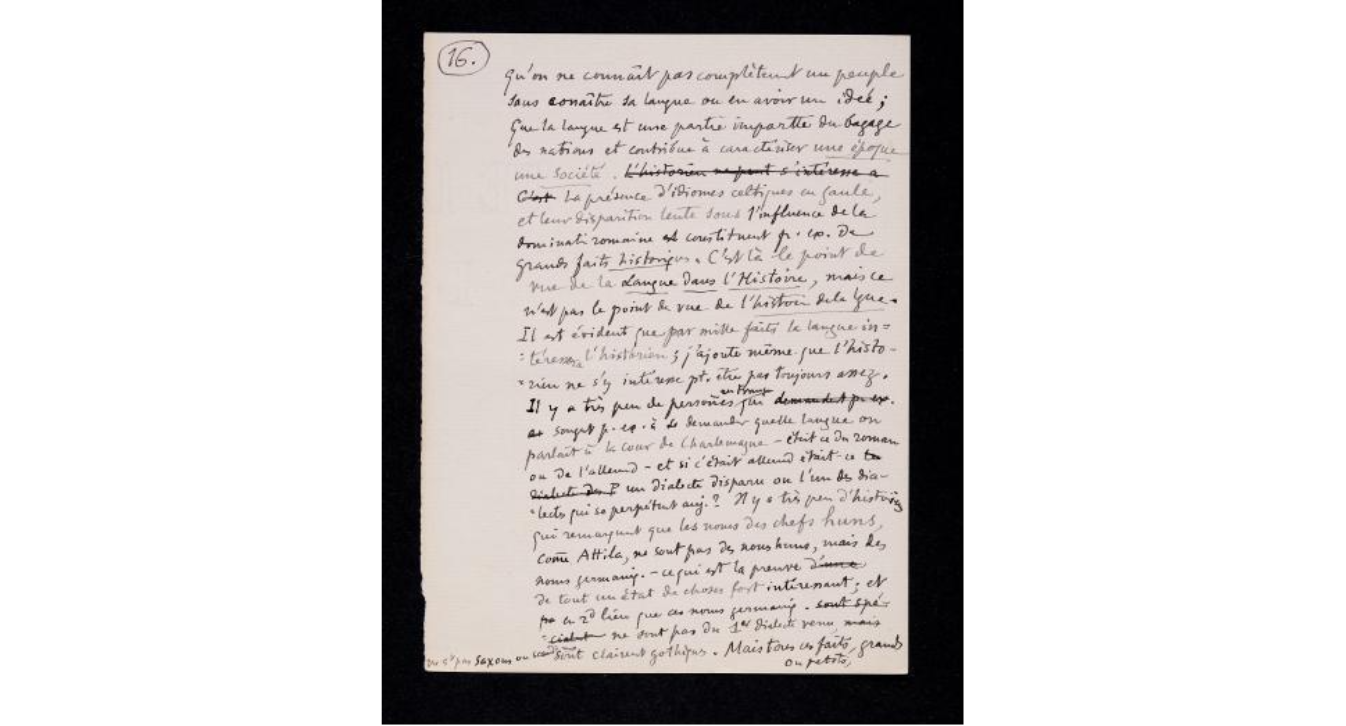 16.
qu'on ne connaît pas complètemt un peuple
sans conaître sa langue ou en avoir un idée ;
que la langue est une partie importte du bagage
des nations et contribue à caractériser une époque
une société. L'historien ne peut s'intéresse a
C'est La présence d'idiomes celtiques en gaule,
et leur disparition lente sous l'influence de la
dominati romaine constituent p. ex. de
grands faits historiqus. C'est là le point de
vue de la Langue dans l'Histoire, mais ce
n'est pas le point de vue de l'histoir de la lgue.
Il est évident que par mille faits la langue in=
=téressera l'historien ; j'ajoute même que l'histo-
=rien ne s'y intéresse pt. être pas toujours assez.
Il y a très peu de personnes en France qui demandent p. ex.
songt p. ex. à se demander quelle langue on
parlait à la cour de Charlemagne – était ce du roman
ou de l'allemd – et si c'était allemd était-ce
dialecte des un dialecte disparu ou l'un des dia-
=lects qui se perpétuent auj. ? Il y a très peu d'historiens
qui remarquent que les noms des chefs huns,
come Attila, ne sont pas des noms huns, mais des
noms germaniq. – ce qui est la preuve d'une
de tout un état de choses fort intéressant ; et
en 2d lieu que ces noms germaniq. sont spé-
=cialmt ne sont pas du 1er dialecte venu, mais
ne st pas Saxons ou scandinaves sont clairemt gothiques. Mais tous ces faits, grands
ou petits,